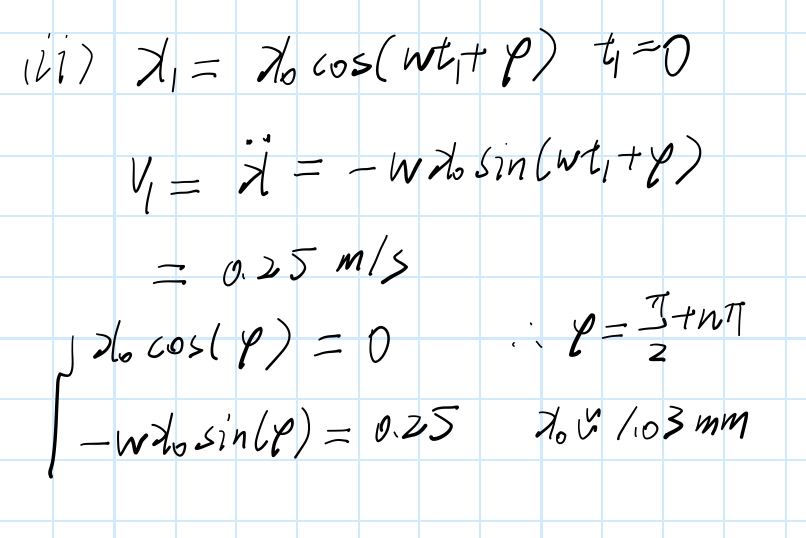 (ii) x₁ = x₀ cos(wt₁+φ) t₁=0
V₁ = ẍ = -wx₀ sin(wt₁+φ)
= 0.25 m/s
x₀ cos(φ) = 0 ∴ φ = π/2 + nπ
-wx₀ sin(φ) = 0.25 x₀ ≈ 1.03 mm